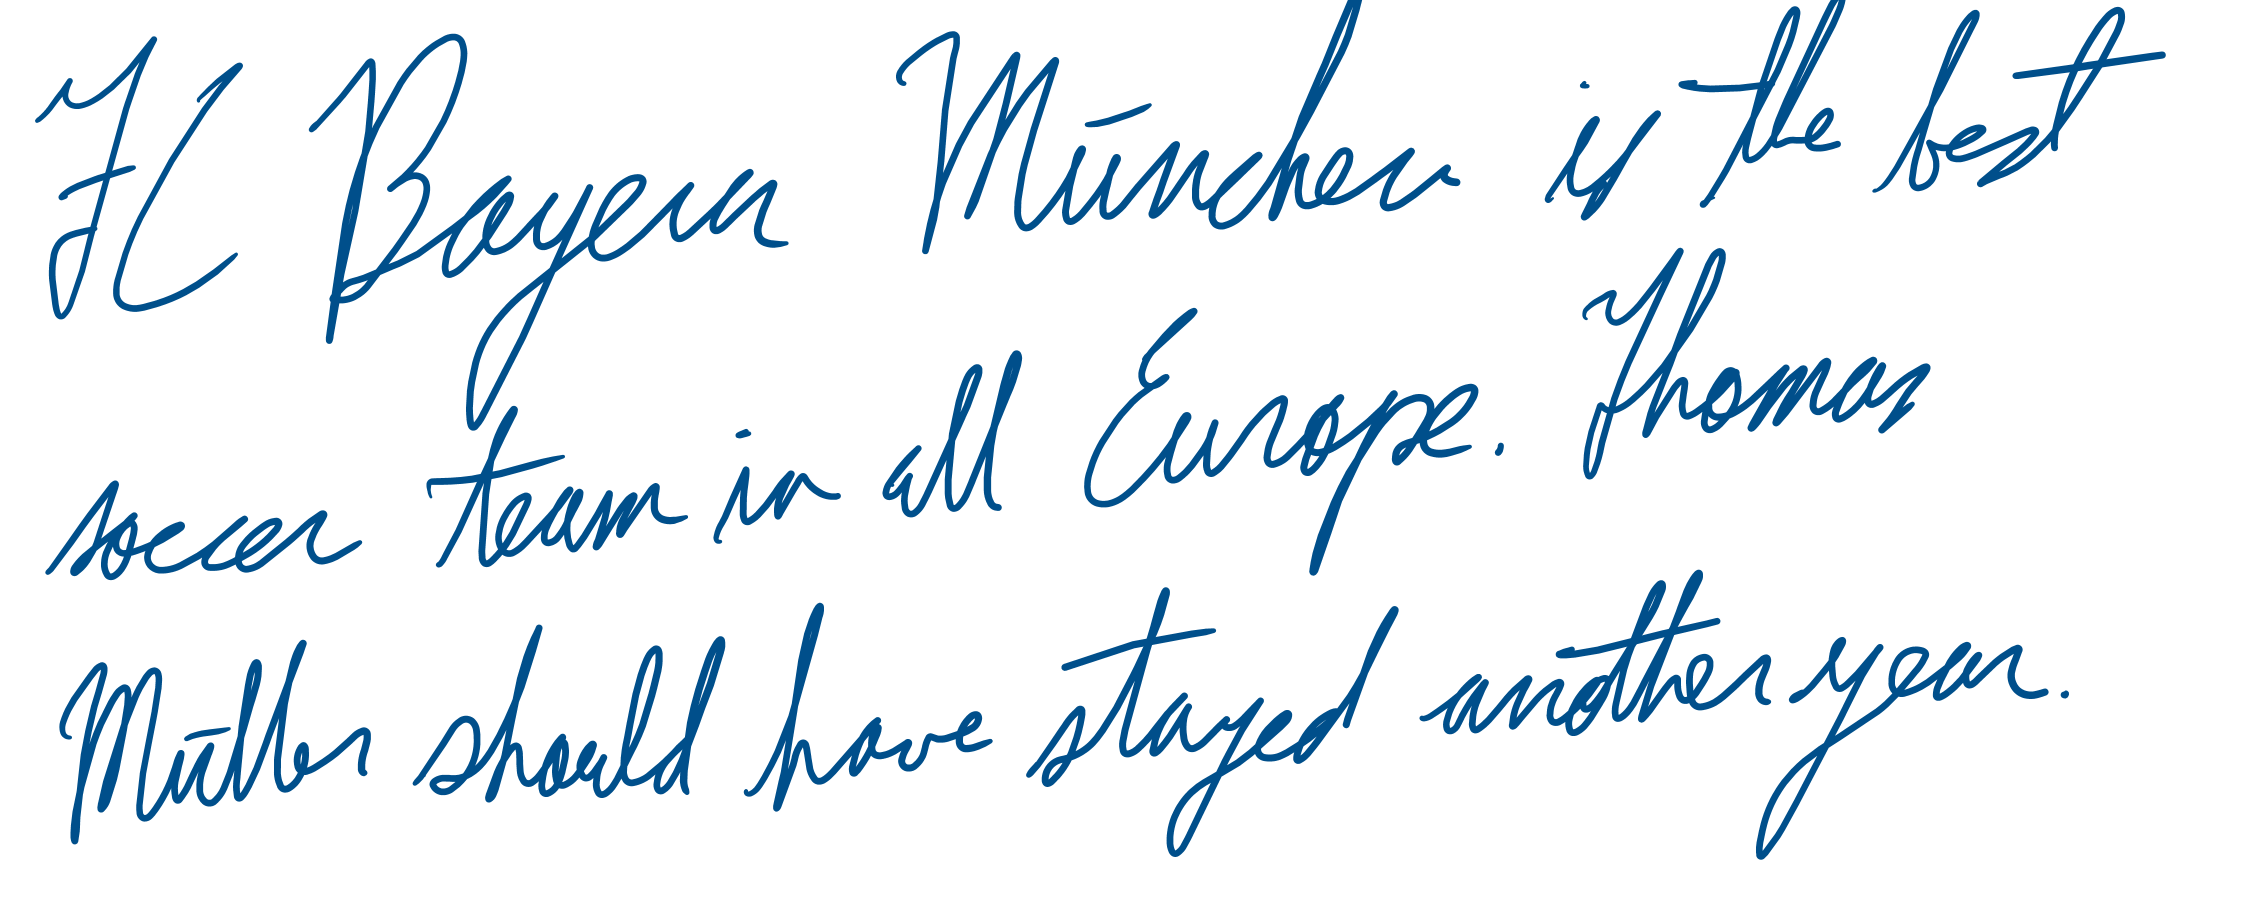 FC Bayern München is the best
soccer team in all Europe. Thomas
Müller should have stayed another year.